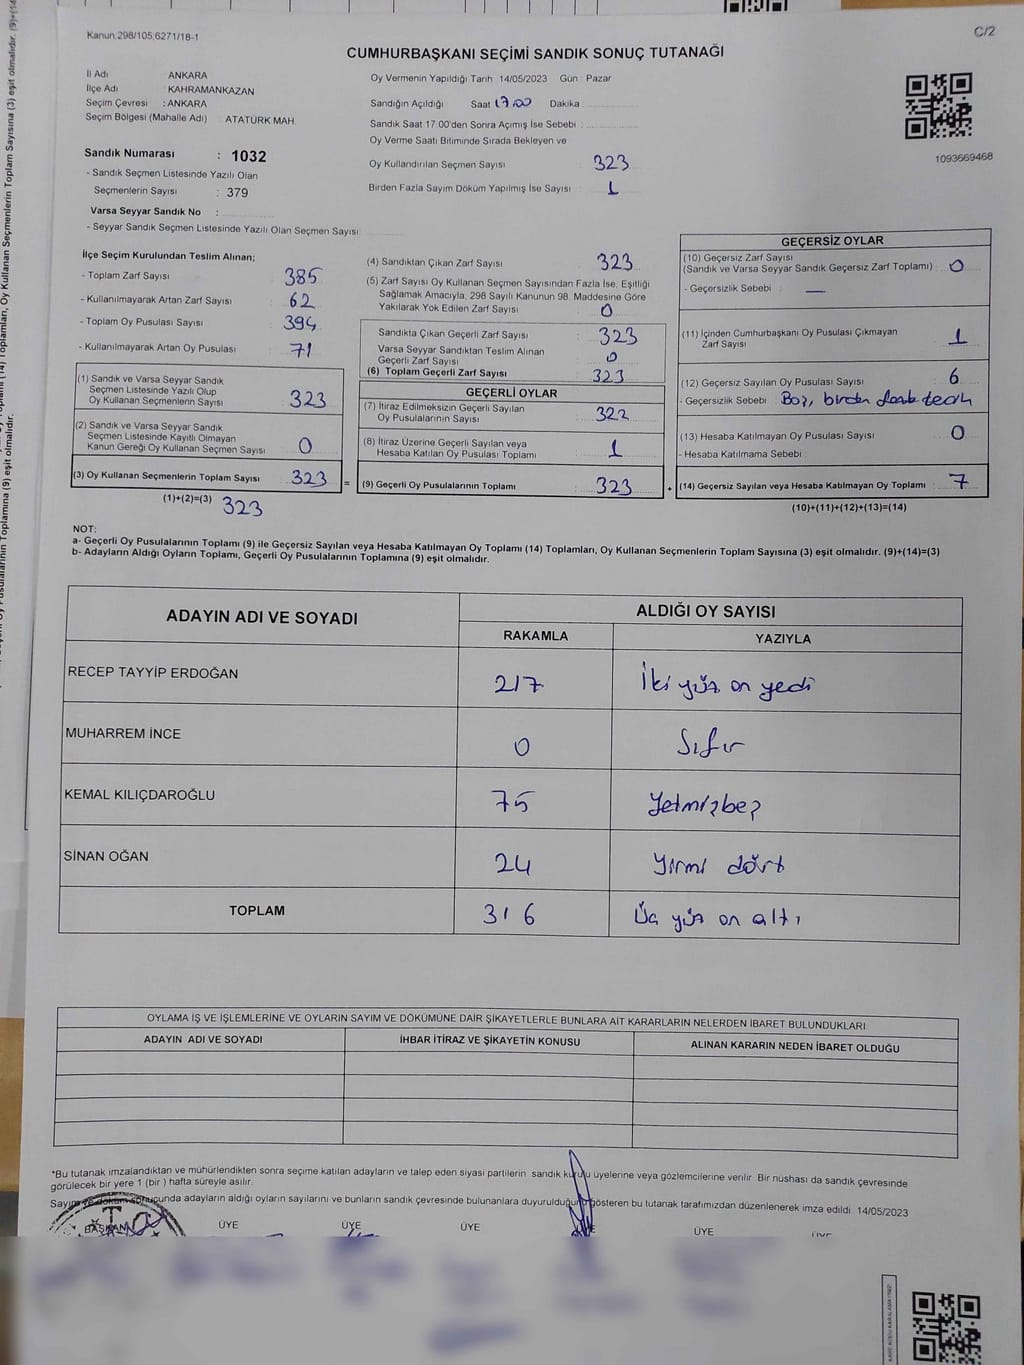 C/2
Kanun 298/105,6271/18-1
CUMHURBAŞKANI SEÇİMİ SANDIK SONUÇ TUTANAĞI
İl Adı ANKARA
İlçe Adı : KAHRAMANKAZAN
Seçim Çevresi : ANKARA
Seçim Bölgesi (Mahalle Adı) : ATATÜRK MAH.
Sandık Numarası : 1032
- Sandık Seçmen Listesinde Yazılı Olan
Seçmenlerin Sayısı : 379
Varsa Seyyar Sandık No :
- Seyyar Sandık Seçmen Listesinde Yazılı Olan Seçmen Sayısı:
Oy Vermenin Yapıldığı Tarih 14/05/2023 Gün : Pazar
Sandığın Açıldığı Saat 17.00 Dakika
Sandık Saat 17:00'den Sonra Açımış İse Sebebi :
Oy Verme Saati Bitiminde Sırada Bekleyen ve
Oy Kullandırılan Seçmen Sayısı : 323
Birden Fazla Sayım Döküm Yapılmış İse Sayısı : 1
1093669468
İlçe Seçim Kurulundan Teslim Alınan;
- Toplam Zarf Sayısı : 385
- Kullanılmayarak Artan Zarf Sayısı : 62
- Toplam Oy Pusulası Sayısı : 394
- Kullanılmayarak Artan Oy Pusulası : 71
(1) Sandık ve Varsa Seyyar Sandık
Seçmen Listesinde Yazılı Olup
Oy Kullanan Seçmenlerin Sayısı : 323
(2) Sandık ve Varsa Seyyar Sandık
Seçmen Listesinde Kayıtlı Olmayan
Kanun Gereği Oy Kullanan Seçmen Sayısı : 0
(3) Oy Kullanan Seçmenlerin Toplam Sayısı : 323 =
(1)+(2)=(3) 323
(4) Sandıktan Çıkan Zarf Sayısı : 323
(5) Zarf Sayısı Oy Kullanan Seçmen Sayısından Fazla İse, Eşitliği
Sağlamak Amacıyla, 298 Sayılı Kanunun 98. Maddesine Göre
Yakılarak Yok Edilen Zarf Sayısı : 0
Sandıkta Çıkan Geçerli Zarf Sayısı : 323
Varsa Seyyar Sandıktan Teslim Alınan
Geçerli Zarf Sayısı : 0
(6) Toplam Geçerli Zarf Sayısı : 323
GEÇERLİ OYLAR
(7) İtiraz Edilmeksizin Geçerli Sayılan
Oy Pusulasının Sayısı : 322
(8) İtiraz Üzerine Geçerli Sayılan veya
Hesaba Katılan Oy Pusulası Toplamı : 1
(9) Geçerli Oy Pusulalarının Toplamı : 323 +
GEÇERSİZ OYLAR
(10) Geçersiz Zarf Sayısı
(Sandık ve Varsa Seyyar Sandık Geçersiz Zarf Toplamı) : 0
- Geçersizlik Sebebi : —
(11) İçinden Cumhurbaşkanı Oy Pusulası Çıkmayan
Zarf Sayısı : 1
(12) Geçersiz Sayılan Oy Pusulası Sayısı : 6
- Geçersizlik Sebebi : Boş, birden fazla tercih
(13) Hesaba Katılmayan Oy Pusulası Sayısı : 0
- Hesaba Katılmama Sebebi :
(14) Geçersiz Sayılan veya Hesaba Katılmayan Oy Toplamı : 7
(10)+(11)+(12)+(13)=(14)
NOT:
a- Geçerli Oy Pusulalarının Toplamı (9) ile Geçersiz Sayılan veya Hesaba Katılmayan Oy Toplamı (14) Toplamları, Oy Kullanan Seçmenlerin Toplam Sayısına (3) eşit olmalıdır. (9)+(14)=(3)
b- Adayların Aldığı Oyların Toplamı, Geçerli Oy Pusulalarının Toplamına (9) eşit olmalıdır.
ADAYIN ADI VE SOYADI ALDIĞI OY SAYISI
RAKAMLA YAZIYLA
RECEP TAYYİP ERDOĞAN 217 İki yüz on yedi
MUHARREM İNCE 0 Sıfır
KEMAL KILIÇDAROĞLU 75 Yetmişbeş
SİNAN OĞAN 24 Yirmi dört
TOPLAM 316 Üç yüz on altı
OYLAMA İŞ VE İŞLEMLERİNE VE OYLARIN SAYIM VE DÖKÜMÜNE DAİR ŞİKAYETLERLE BUNLARA AİT KARARLARIN NELERDEN İBARET BULUNDUKLARI
ADAYIN ADI VE SOYADI İHBAR İTİRAZ VE ŞİKAYETİN KONUSU ALINAN KARARIN NEDEN İBARET OLDUĞU
*Bu tutanak imzalandıktan ve mühürlendikten sonra seçime katılan adayların ve talep eden siyasi partilerin sandık kurulu üyelerine veya gözlemcilerine verilir. Bir nüshası da sandık çevresinde
görülecek bir yere 1 (bir ) hafta süreyle asılır.
Sayım ve döküm sonucunda adayların aldığı oyların sayılarını ve bunların sandık çevresinde bulunanlara duyurulduğunu gösteren bu tutanak tarafımızdan düzenlenerek imza edildi. 14/05/2023
BAŞKAN ÜYE ÜYE ÜYE ÜYE ÜYE